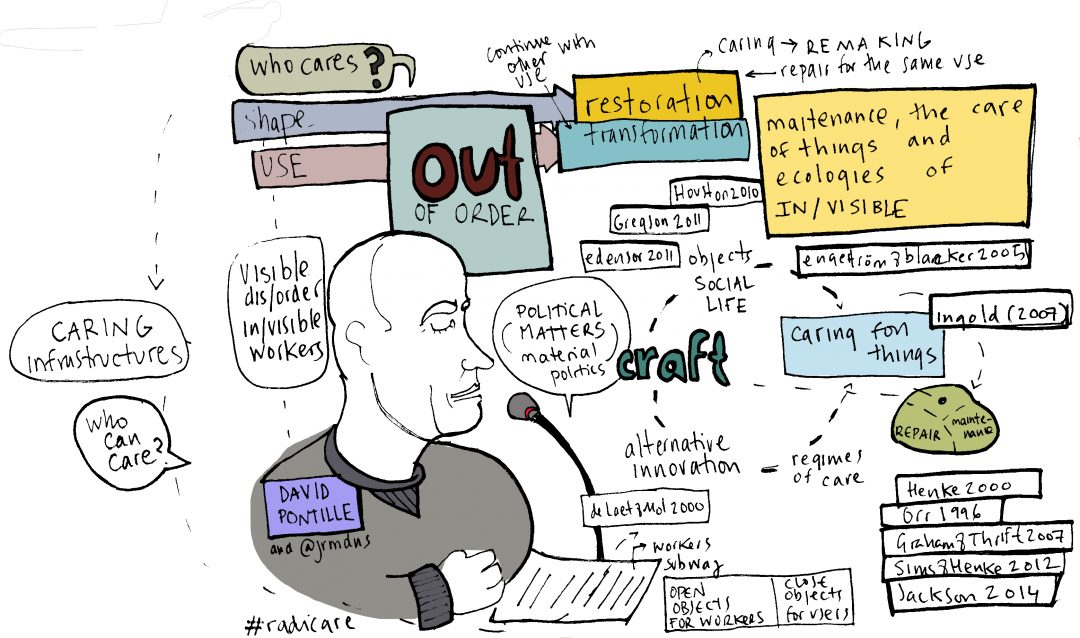 who cares ?
continue with
other
use
caring → REMAKING
← repair for the same use
shape
USE
restoration
transformation
OUT
OF ORDER
maitenance, the care
of things and
ecologies of
IN/VISIBLE
Houston 2010
Gregson 2011
edensor 2011
objects
SOCIAL
LIFE
engeström & blaacker 2005
ingold (2007)
CARING
infrastructures
Visible
dis/order
in/visible
workers
POLITICAL
MATTERS
material
politics
craft
caring for
things
who
can
care?
REPAIR
mainte-
nance
alternative
innovation
regimes
of care
DAVID
PONTILLE
and @jrmdns
de Laet & Mol 2000
workers
subway
OPEN
OBJECTS
FOR WORKERS
close
objects
for users
Henke 2000
Orr 1996
Graham & Thrift 2007
Sims & Henke 2012
Jackson 2014
#radicare